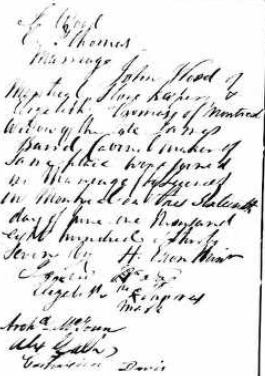 J. Wood
E. Thomas
Marriage
John Wood of
Montreal Shopkeeper &
Elizabeth Thomas of Montreal
Widow of the late James
Baird Cabinet maker of
same place were joined
in Marriage by Licence
in Montreal on the Sixteenth
day of June one thousand
eight hundred & thirty
Seven By H. Esson Minr
Elizabeth Thomas
mark
Archd
Alex
Catherine Davis